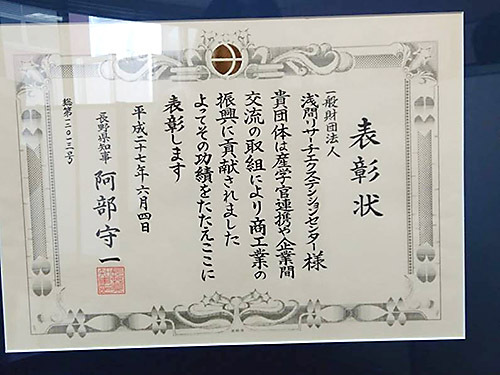 表彰状
一般財団法人
浅間リサーチエクステンションセンター様
貴団体は産学官連携や企業間
交流の取組により商工業の
振興に貢献されました
よってその功績をたたえここに
表彰します
平成二十七年六月四日
長野県知事 阿部守一
総第二〇ー三号